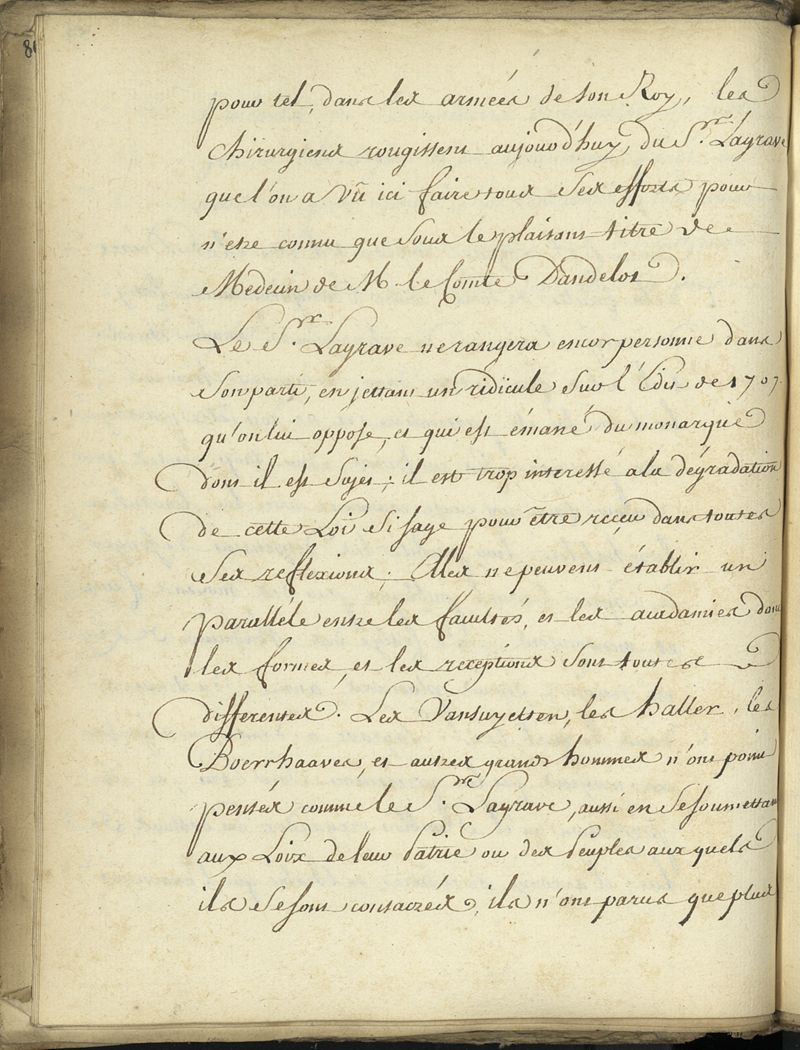 8
pour tel, dans les armées de son Roy, les
chirurgiens rougissent aujourd'huy, du S.r Lagrave
que l'on a vû ici faire tous ses efforts pour
n'etre connu que sous le plaisant titre de
Medecin de M. le Comte Dandelot.
Le S.r Lagrave ne rangera encor personne dans
son parti, en jettant un ridicule sur l'Edit de 1707.
qu'on lui oppose, et qui est émané du monarque
dont il est sujet; il est trop interessé a la dégradation
de cette Loi si sage pour être reçeu dans toutes
ses reflexions; Elles ne peuvent établir un
paralléle entre les facultés, et les academies dont
les formes, et les receptions sont toutes
differentes. Les Vansuyetten, les haller, les
Boerrhaaves, et autres grands hommes n'ont point
pensés comme le S.r Lagrave, aussi en se soumettant
aux Loix de leur Patrie ou des Peuples aux quels
ils se sont consacrés, ils n'ont parus que plus